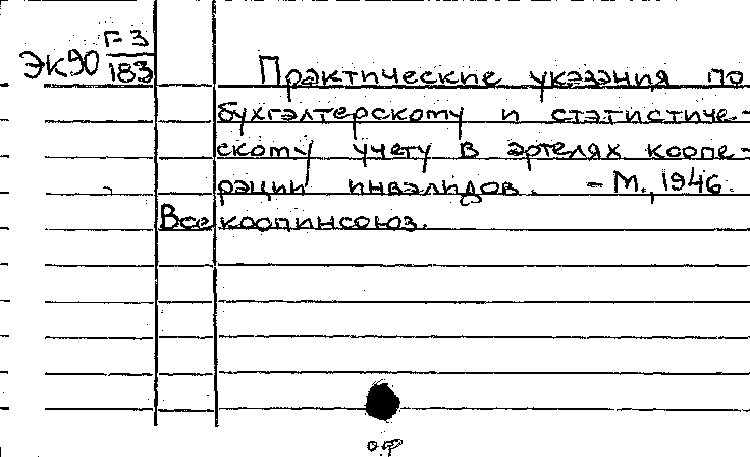 ЭК90 Г-3
183
Практические указания по
бухгалтерскому и статистиче-
скому учету в артелях коопе-
рации инвалидов. - М., 1946.
Всекоопинсоюз.